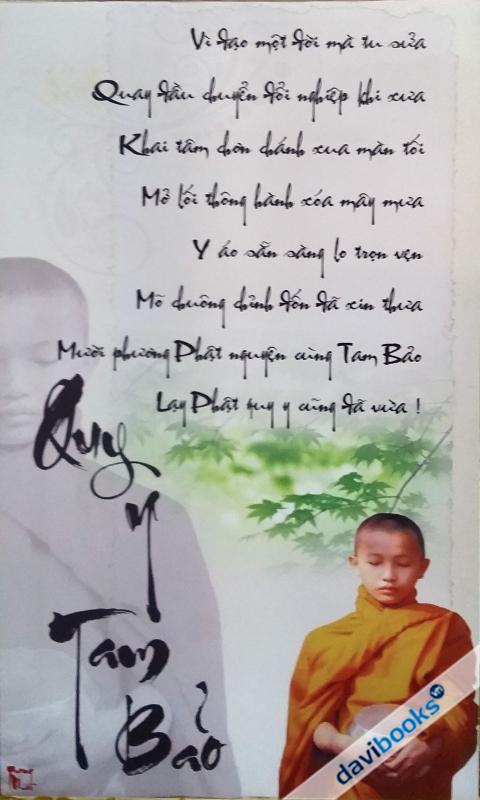 Vì đạo một đời mà tu sửa
Quay đầu chuyển đổi nghiệp khi xưa
Khai tâm chơn chánh xua màn tối
Mở lối thông hành xóa mây mưa
Y áo sẵn sàng lo trọn vẹn
Mõ chuông chỉnh đốn đã xin thưa
Mười phương Phật nguyện cùng Tam Bảo
Lạy Phật quy y cũng đã vừa !
Quy
y
Tam
Bảo
davibooks.vn